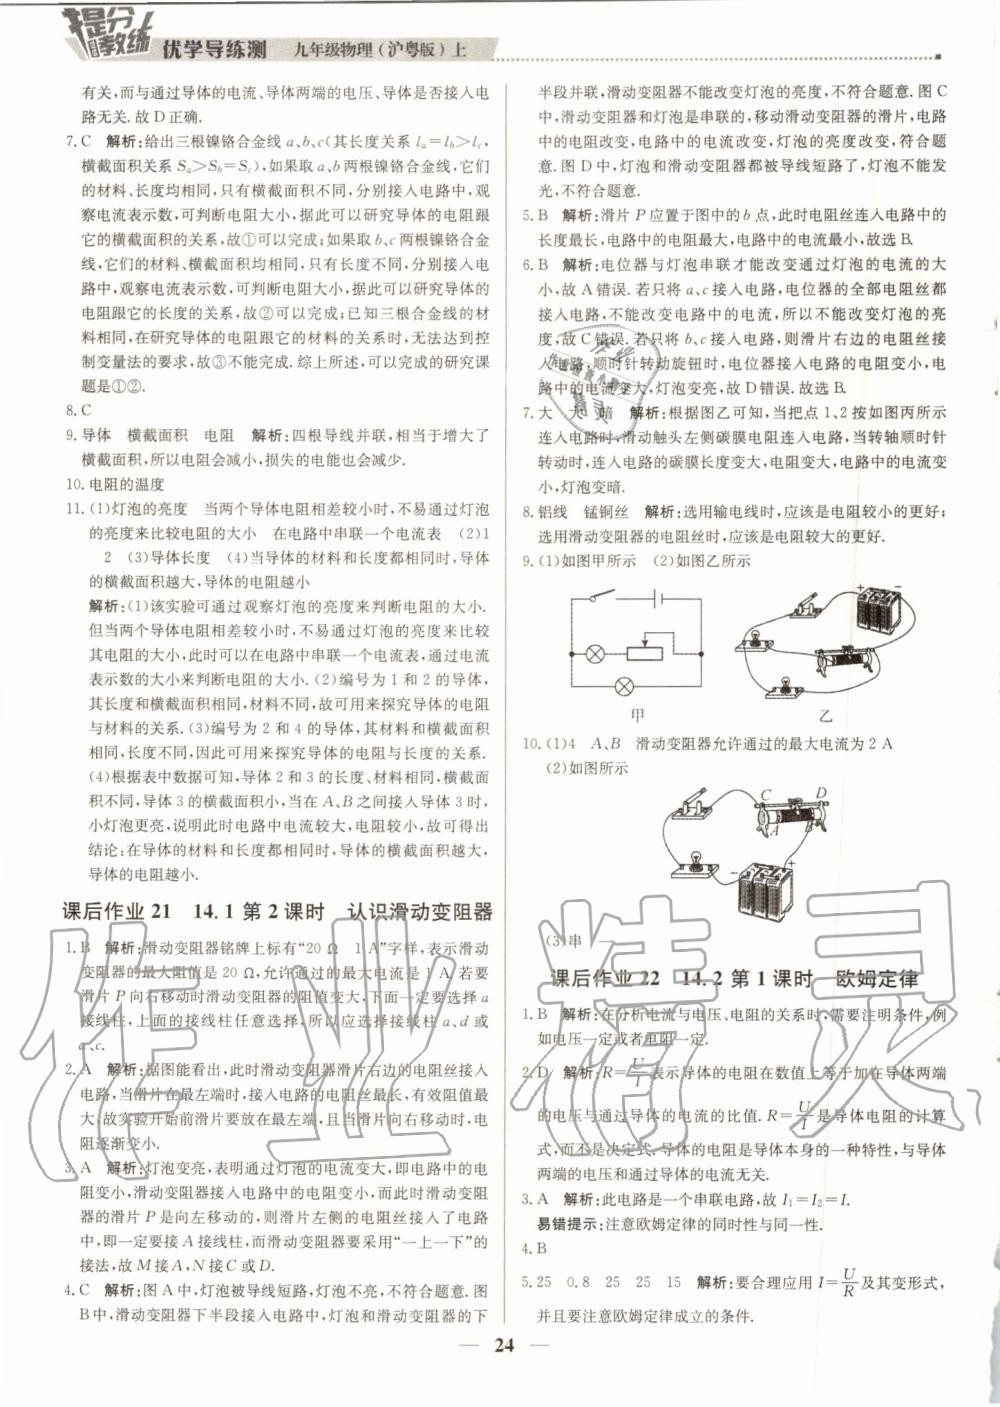 提分教练
优学导练测 九年级物理(沪粤版)上
有关,而与通过导体的电流、导体两端的电压、导体是否接入电
路无关.故 D 正确.
7. C 解析:给出三根镍铬合金线 a、b、c(其长度关系 la=lb>lc,
横截面积关系 Sa>Sb=Sc),如果取 a、b 两根镍铬合金线,它们
的材料、长度均相同,只有横截面积不同,分别接入电路中,观
察电流表示数,可判断电阻大小,据此可以研究导体的电阻跟
它的横截面积的关系,故①可以完成;如果取 b、c 两根镍铬合金
线,它们的材料、横截面积均相同,只有长度不同,分别接入电
路中,观察电流表示数,可判断电阻大小,据此可以研究导体的
电阻跟它的长度的关系,故②可以完成;已知三根合金线的材
料相同,在研究导体的电阻跟它的材料的关系时,无法达到控
制变量法的要求,故③不能完成.综上所述,可以完成的研究课
题是①②.
8. C
9. 导体 横截面积 电阻 解析:四根导线并联,相当于增大了
横截面积,所以电阻会减小,损失的电能也可以会减少.
10. 电阻的温度
11. (1)灯泡的亮度 当两个导体电阻相差较小时,不易通过灯泡
的亮度来比较电阻的大小 在电路中串联一个电流表 (2)1
2 (3)导体长度 (4)当导体的材料和长度都相同时,导体
的横截面积越大,导体的电阻越小
解析:(1)该实验可通过观察灯泡的亮度来判断电阻的大小.
但当两个导体电阻相差较小时,不易通过灯泡的亮度来比较
其电阻的大小,此时可以在电路中串联一个电流表,通过电流
表示数的大小来判断电阻的大小.(2)编号为 1 和 2 的导体,
其长度和横截面积相同,材料不同,故可用来探究导体的电阻
与材料的关系.(3)编号为 2 和 4 的导体,其材料和横截面积
相同,长度不同,因此可用来探究导体的电阻与长度的关系.
(4)根据表中数据可知,导体 2 和导体 3 的长度、材料相同,横截面
积不同,导体 3 的横截面积小,当在 A、B 之间接入导体 2 时,
小灯泡更亮,说明此时电路中电流较大,电阻较小,故可得出
结论:在导体的材料和长度都相同时,导体的横截面积越大,
导体的电阻越小.
课后作业 21 14.1 第 2 课时 认识滑动变阻器
1. B 解析:滑动变阻器铭牌上标有“20 Ω 1 A”字样,表示滑动
变阻器的最大阻值是 20 Ω,允许通过的最大电流是 1 A;若要
滑片 P 向右移动时滑动变阻器的阻值变大,下面一定要选择 a
接线柱,上面的接线柱任意选择,所以应选择接线柱 a、d 或
a、c.
2. A 解析:据图能看出,此时滑动变阻器滑片右边的电阻丝接入
电路,当滑片在最左端时,接入电路中的电阻丝最长,有效阻值最
大,故实验开始前滑片要放在最左端,且当滑片向右移动时,电
阻逐渐变小.
3. A 解析:灯泡变亮,表明通过灯泡的电流变大,即电路中的电
阻变小,滑动变阻器接入电路中的电阻变小,而此时滑动变阻器
的滑片 P 是向左移动的,则滑片左侧的电阻丝接入了电路
中,即一定要接 A 接线柱,而滑动变阻器要采用“一上一下”的
接法,故 M 接 A,N 接 C 或 D.
4. C 解析:图 A 中,灯泡被导线短路,灯泡不亮,不符合题意.图
B 中,滑动变阻器下半段接入电路中,灯泡和滑动变阻器的下
半段并联,滑动变阻器不能改变灯泡的亮度,不符合题意.图 C
中,滑动变阻器和灯泡是串联的,移动滑动变阻器的滑片,电路
中的电阻改变,电路中的电流改变,灯泡的亮度改变,符合题
意.图 D 中,灯泡和滑动变阻器都被导线短路了,灯泡不能发
光,不符合题意.
5. B 解析:滑片 P 应置于图中的 b 点,此时电阻丝连入电路中的
长度最长,电路中的电阻最大,电路中的电流最小,故选 B.
6. B 解析:电位器与灯泡串联才能改变通过灯泡的电流的大
小,故 A 错误.若只将 a、c 接入电路,电位器的全部电阻丝都
接入电路,不能改变电路中的电流,所以不能改变灯泡的亮
度,故 C 错误.若只将 b、c 接入电路,则滑片右边的电阻丝接
入电路,顺时针转动旋钮时,电位器接入电路的电阻变小,电
路中的电流变大,灯泡变亮,故 D 错误.故选 B.
7. 大 大 暗 解析:根据图乙可知,当把点 1、2 按如图丙所示
连入电路时,滑动触头左侧碳膜电阻连入电路,当转轴顺时针
转动时,连入电路的碳膜长度变大,电阻变大,电路中的电流变
小,灯泡变暗.
8. 铝线 锰铜丝 解析:选用输电线时,应该是电阻较小的更好;
选用滑动变阻器的电阻丝时,应该是电阻较大的更好.
9. (1)如图甲所示 (2)如图乙所示
甲 乙
10. (1)4 A、B 滑动变阻器允许通过的最大电流为 2 A
(2)如图所示
C D
A
(3)串
课后作业 22 14.2 第 1 课时 欧姆定律
1. B 解析:在分析电流与电压、电阻的关系时,需要注明条件,例
如电压一定或者电阻一定.
2. D 解析:R=U/I表示导体的电阻在数值上等于加在导体两端
的电压与通过导体的电流的比值.R=U/I是导体电阻的计算
式,而不是决定式.导体的电阻是导体本身的一种特性,与导体
两端的电压和通过导体的电流无关.
3. A 解析:此电路是一个串联电路,故 I1=I2=I.
易错提示:注意欧姆定律的同时性与同一性.
4. B
5. 25 0.8 25 25 15 解析:要合理应用 I=U/R及其变形式,
并且要注意欧姆定律成立的条件.
24
作业精灵